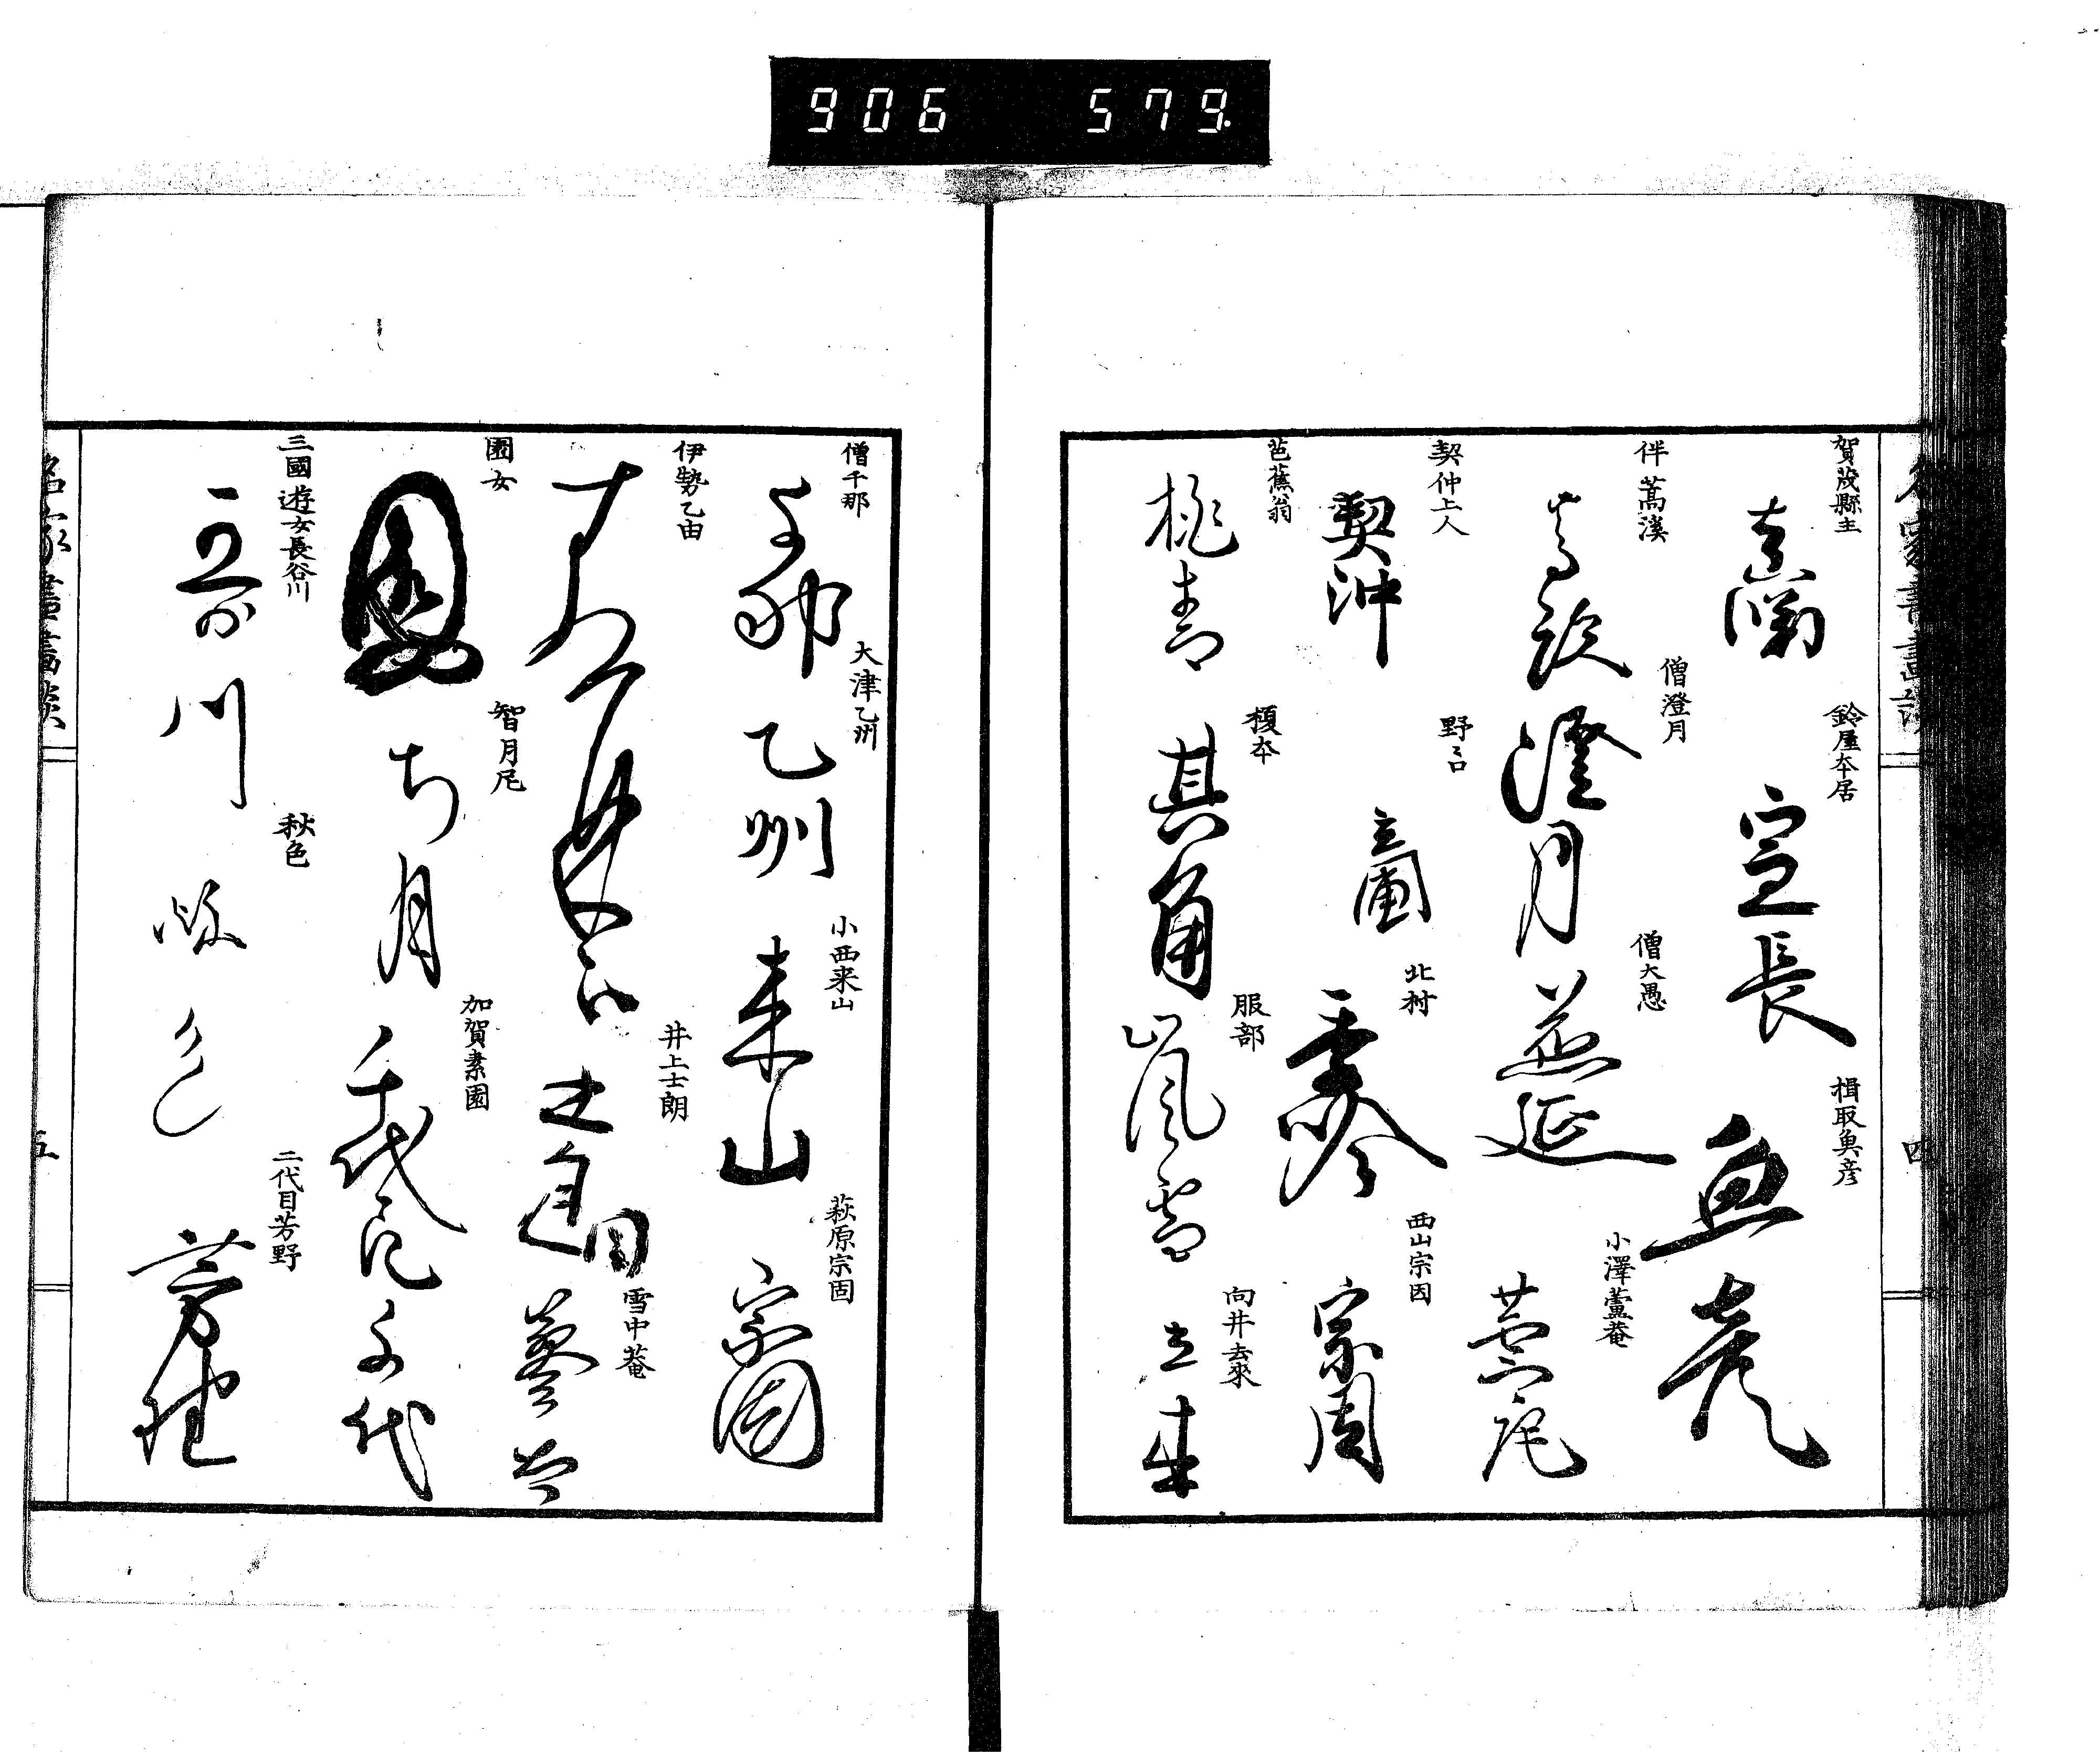 906 579
賀茂縣主
真淵
鈴屋本居
宣長
楫取魚彦
魚彦
伴蒿溪
蒿蹊
僧澄月
澄月
僧大愚
慈延
小澤蘆菴
蘆庵
契仲上人
契沖
野々口
立圃
北村
季吟
西山宗因
宗因
芭蕉翁
桃青
榎本
其角
服部
嵐雪
向井去來
去来
四
僧千那
千那
大津乙州
乙州
小西来山
来山
萩原宗固
宗固
伊勢乙由
井上士朗
士朗
雪中菴
蓼太
園女
智月尼
ち月
加賀素園
千代尼
千代
三國遊女長谷川
川
秋色
秋色
二代目芳野
芳野
名家書畫談
五